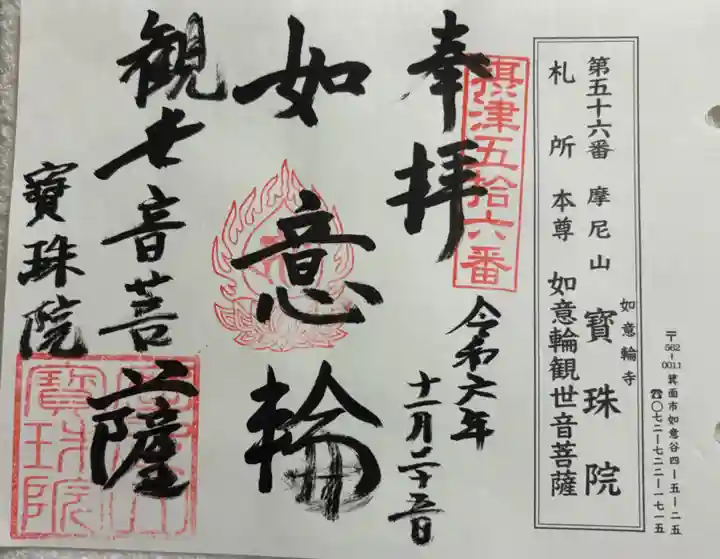 〒562-0011 箕面市如意谷四-五-二五
☎〇七二-七二二-一七一五
第五十六番 摩尼山 如意輪寺 寳珠院
札所本尊 如意輪観世音菩薩
摂津五拾六番
奉拝
令和六年
十一月二十三日
如意輪
観世音菩薩
寳珠院